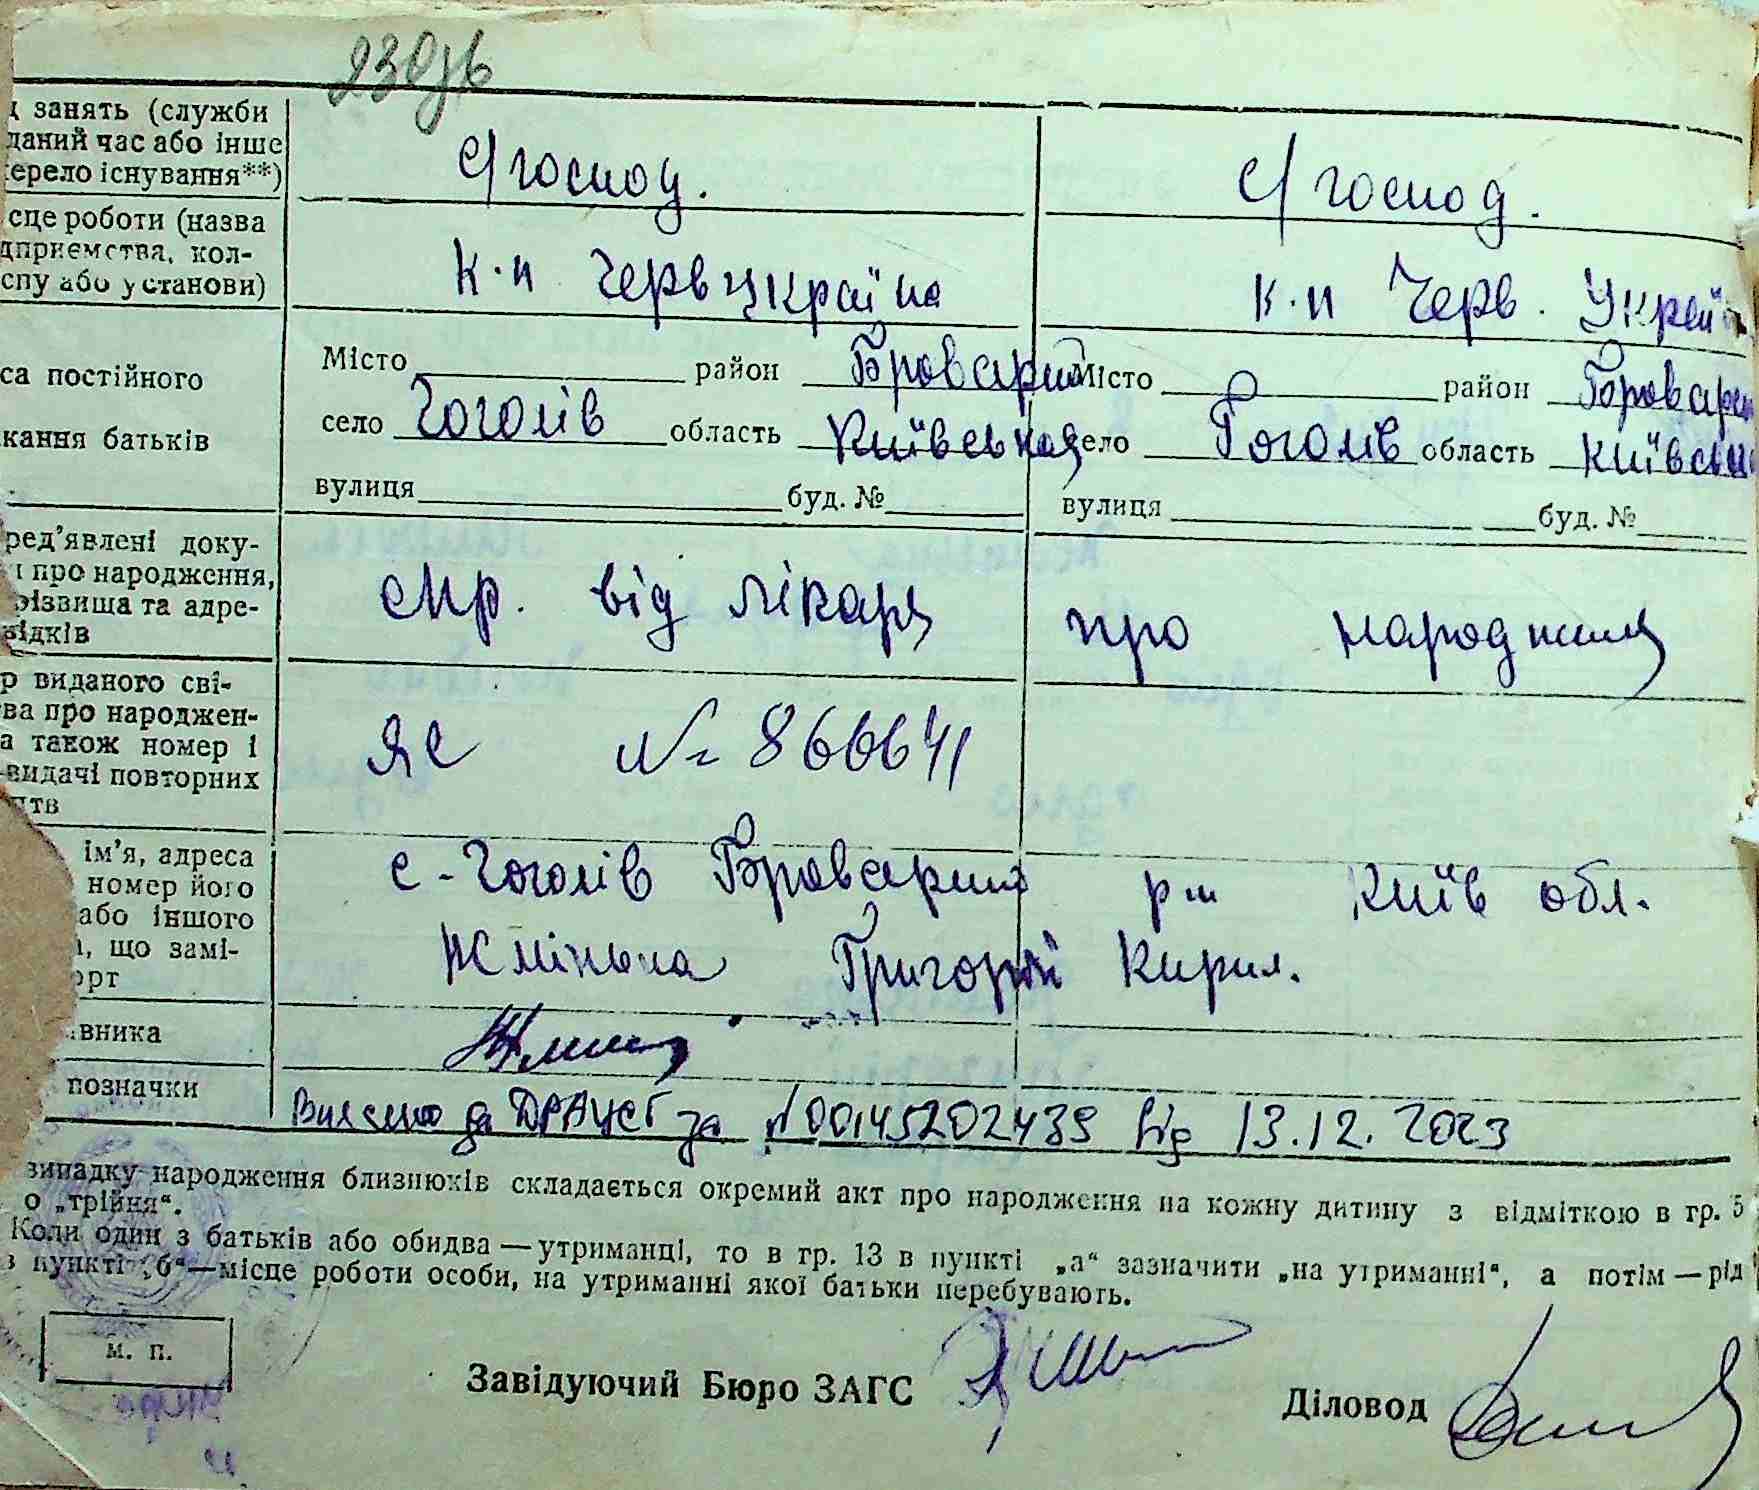 занять (служби
даний час або інше
ерело існування**)
с/господ.
с/господ.
сце роботи (назва
дприємства, кол-
спу або установи)
к-п Черв Україна
к-п Черв. Украї
са постійного
кання батьків
Місто район Броварський
село Гоголів область Київська
вулиця буд. №
Місто район Броварсь
село Гоголів область Київськ
вулиця буд. №
ред'явлені доку-
про народження,
різвища та адре-
відків
спр. від лікаря про народження
р виданого сві-
ва про народжен-
а також номер і
видачі повторних
птв
ЯЄ № 866641
ім'я, адреса
номер його
або іншого
, що замі-
орт
с. Гоголів Броварський р-н Київ обл.
Жмінька Григорій Кирил.
вника
позначки
Внесено до ДРАЦСГ за №00145202439 від 13.12.2023
випадку народження близнюків складається окремий акт про народження на кожну дитину з відміткою в гр. 5
о „трійня“.
Коли один з батьків або обидва — утриманці, то в гр. 13 в пункті „а“ зазначити „на утриманні“, а потім — рід
в пункті „б“ — місце роботи особи, на утриманні якої батьки перебувають.
м. п.
Завідуючий Бюро ЗАГС
Діловод